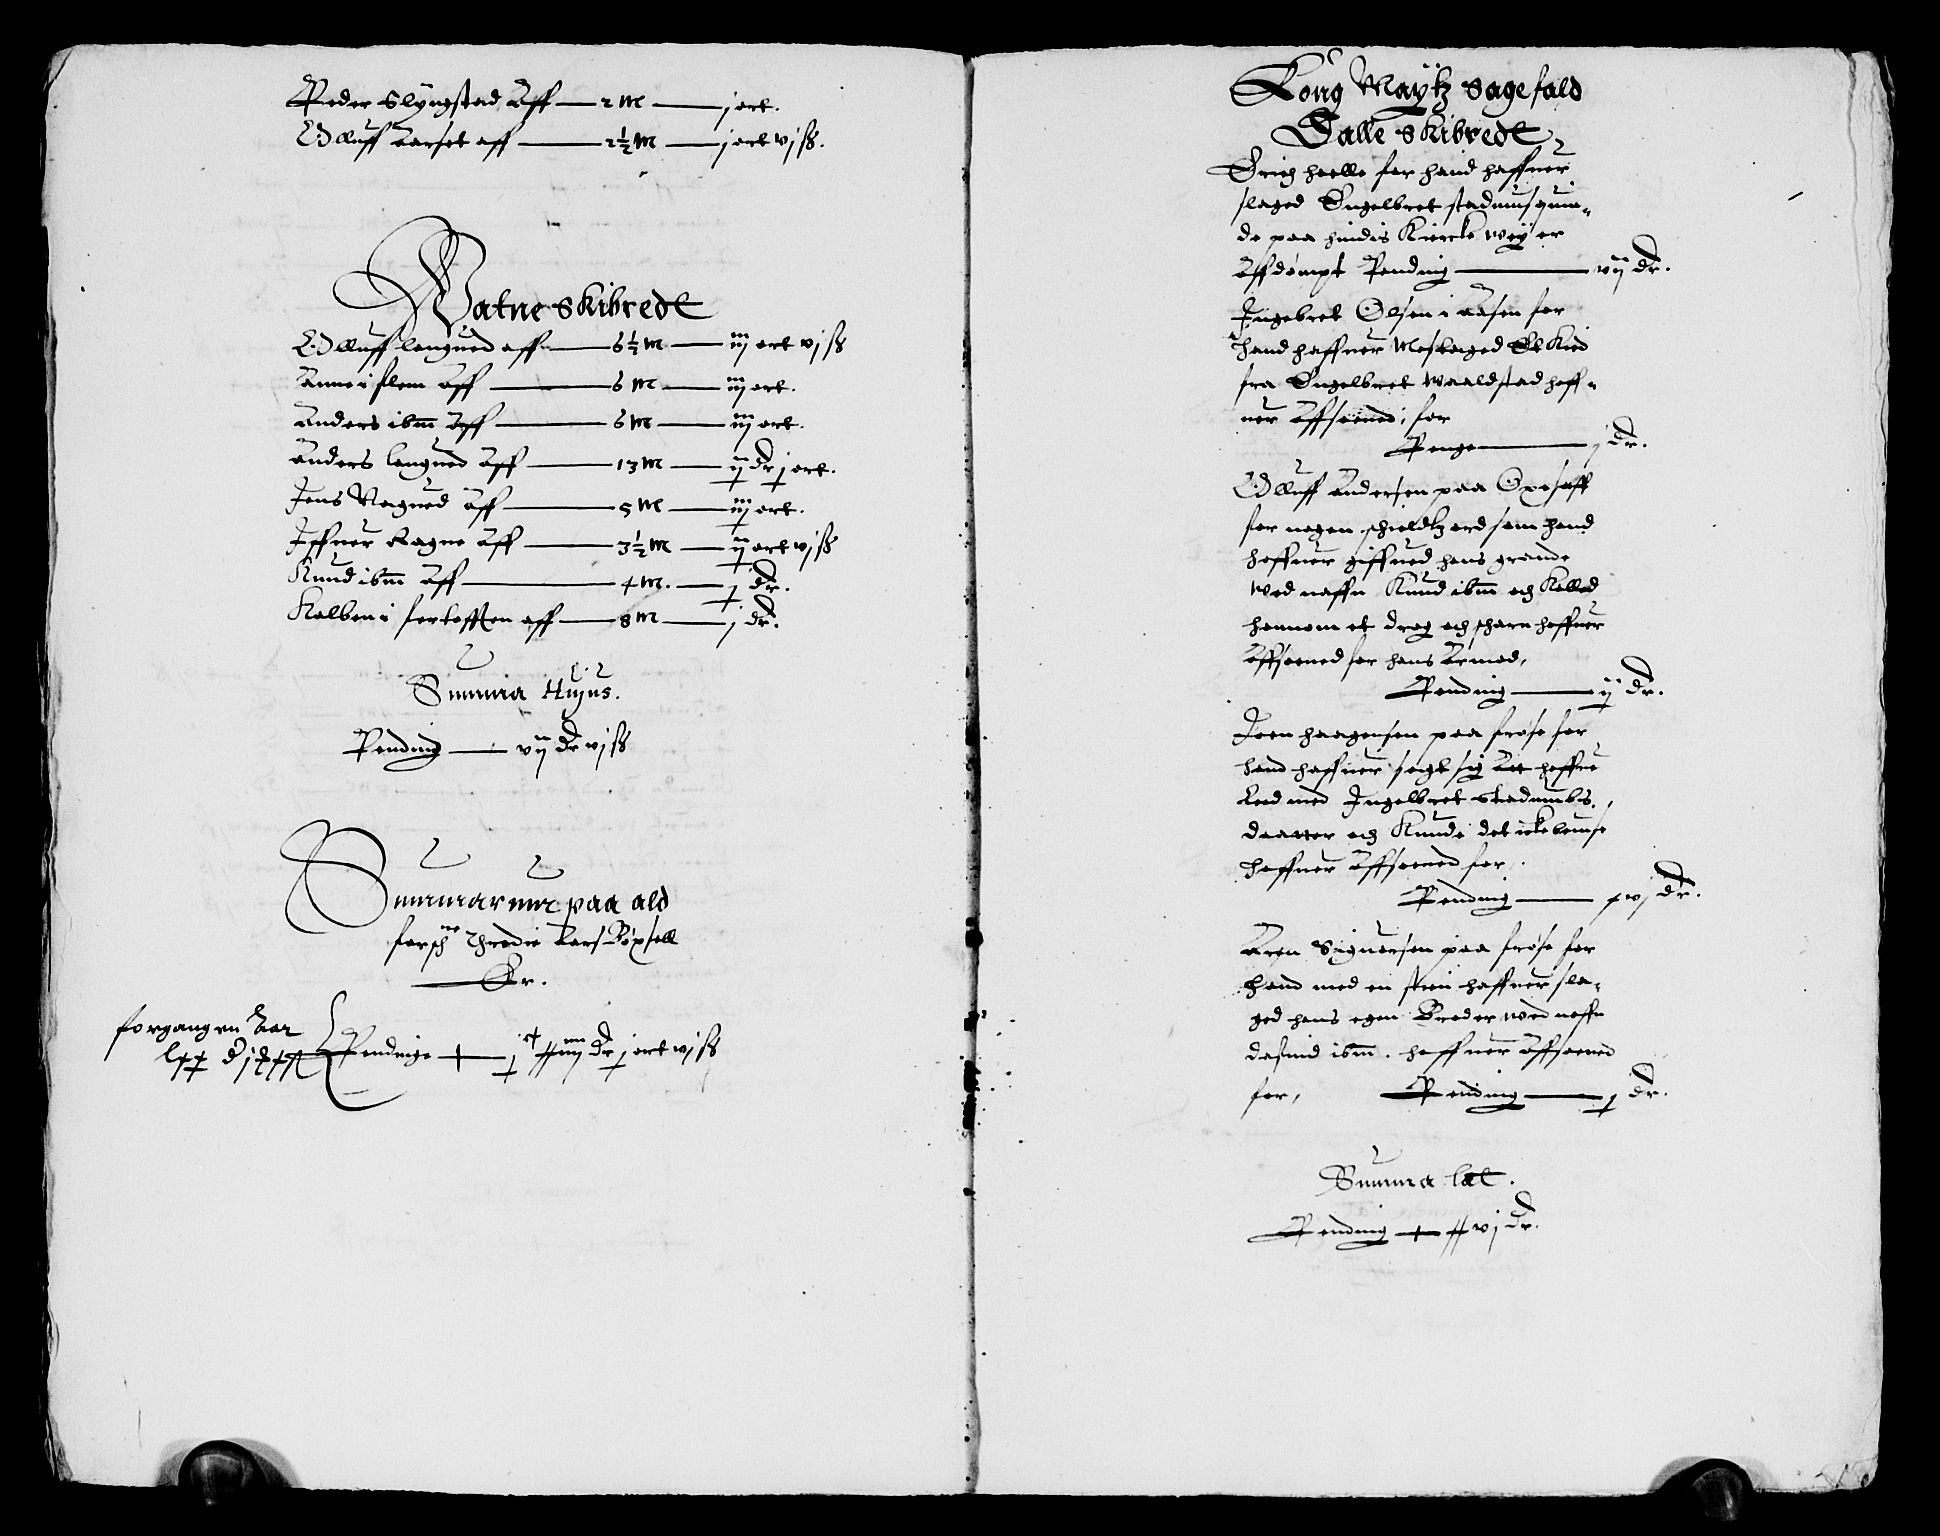 Peder Slyngstad Aff — 2 M — j ort.
Olluff Aarset aff — 2½ M — j ort vj ß.
Vatne Skibrede
Olluff langued aff — 6½ M — iij ort vj ß
Anne i flem Aff — 6 M — iij ort.
Anders ibm Aff — 6 M — iij ort.
Anders langued Aff — 13 M — iij dr j ort.
Jens Vagned Aff — 5 M — iij ort.
Iffuer Ragne Aff — 3½ M — ij ort vj ß
Knud ibm Aff — 4 M. — j dr.
Kolben i aff — 8 M — j dr.
Summa Hujus.
Pending — vij dr vj ß
Summarum paa ald
forschne Thredie Aars Böxsell
Er.
forgangen Aar
Pendinge — dr j ort vj ß
Kong Maytz Sagefald
Dalle Skibrede
Erich hoelle for hand haffuer
slaged Engelbret stadnusquin-
de paa hindis Kiercke wey er
Affdömpt Pending — vij dr.
Ingebret Olsen i Aasen for
hand haffuer Moslaged Et Kid
fra Engelbret Waaldstad heff-
uer Affsoened, for
Penge — j dr.
Olluff Andersen paa
for nogen schieldtz ord som hand
heffuer giffued hans grande
wed naffn Knud ibm och Kalled
hannom et drog och scharn heffuer
Affsoened for hans Armod,
Pending — ij dr.
Joen haagensen paa fröse for
hand haffuer sagt sig Att heffue
Leed med Ingelbret Stadnimbs
daatter och Kunde det icke beuise
haffuer Affsoened for.
Pending — vj dr.
Aren Siguorsen paa fröse for
hand med en stein haffuer sla-
ged hans egen Broder wed naffn
dasuid ibm. heffuer Affsoened
for, Pending — j dr.
Summa lat.
Pending — vj dr.